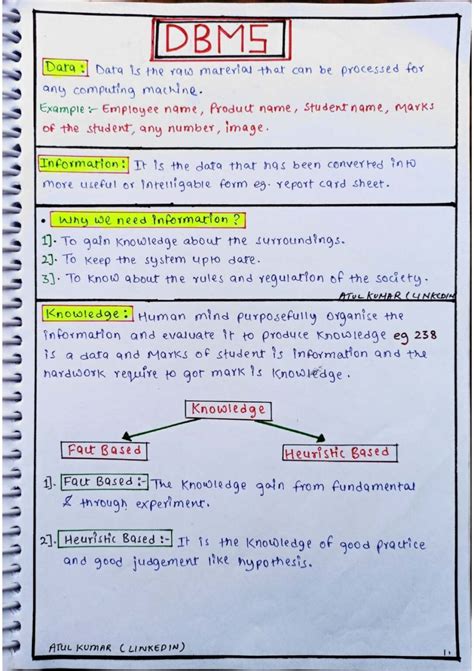 DBMS
Data: Data is the raw material that can be processed for
any computing machine.
Example:- Employee name, Product name, Student name, Marks
of the student, any number, image.
Information: It is the data that has been converted into
more useful or intelligable form eg. report card sheet.
• Why we need information?
1]. To gain knowledge about the surroundings.
2]. To keep the system upto date.
3]. To know about the rules and regulation of the society.
ATUL KUMAR (LINKEDIN
Knowledge: Human mind purposefully organise the
information and evaluate it to produce knowledge eg 238
is a data and Marks of student is information and the
hardwork require to got mark is knowledge.
Knowledge
Fact Based
Heuristic Based
1]. Fact Based:- The knowledge gain from fundamental
& through experiment.
2]. Heuristic Based:- It is the knowledge of good practice
and good judgement like hypothesis.
ATUL KUMAR (LINKEDIN)